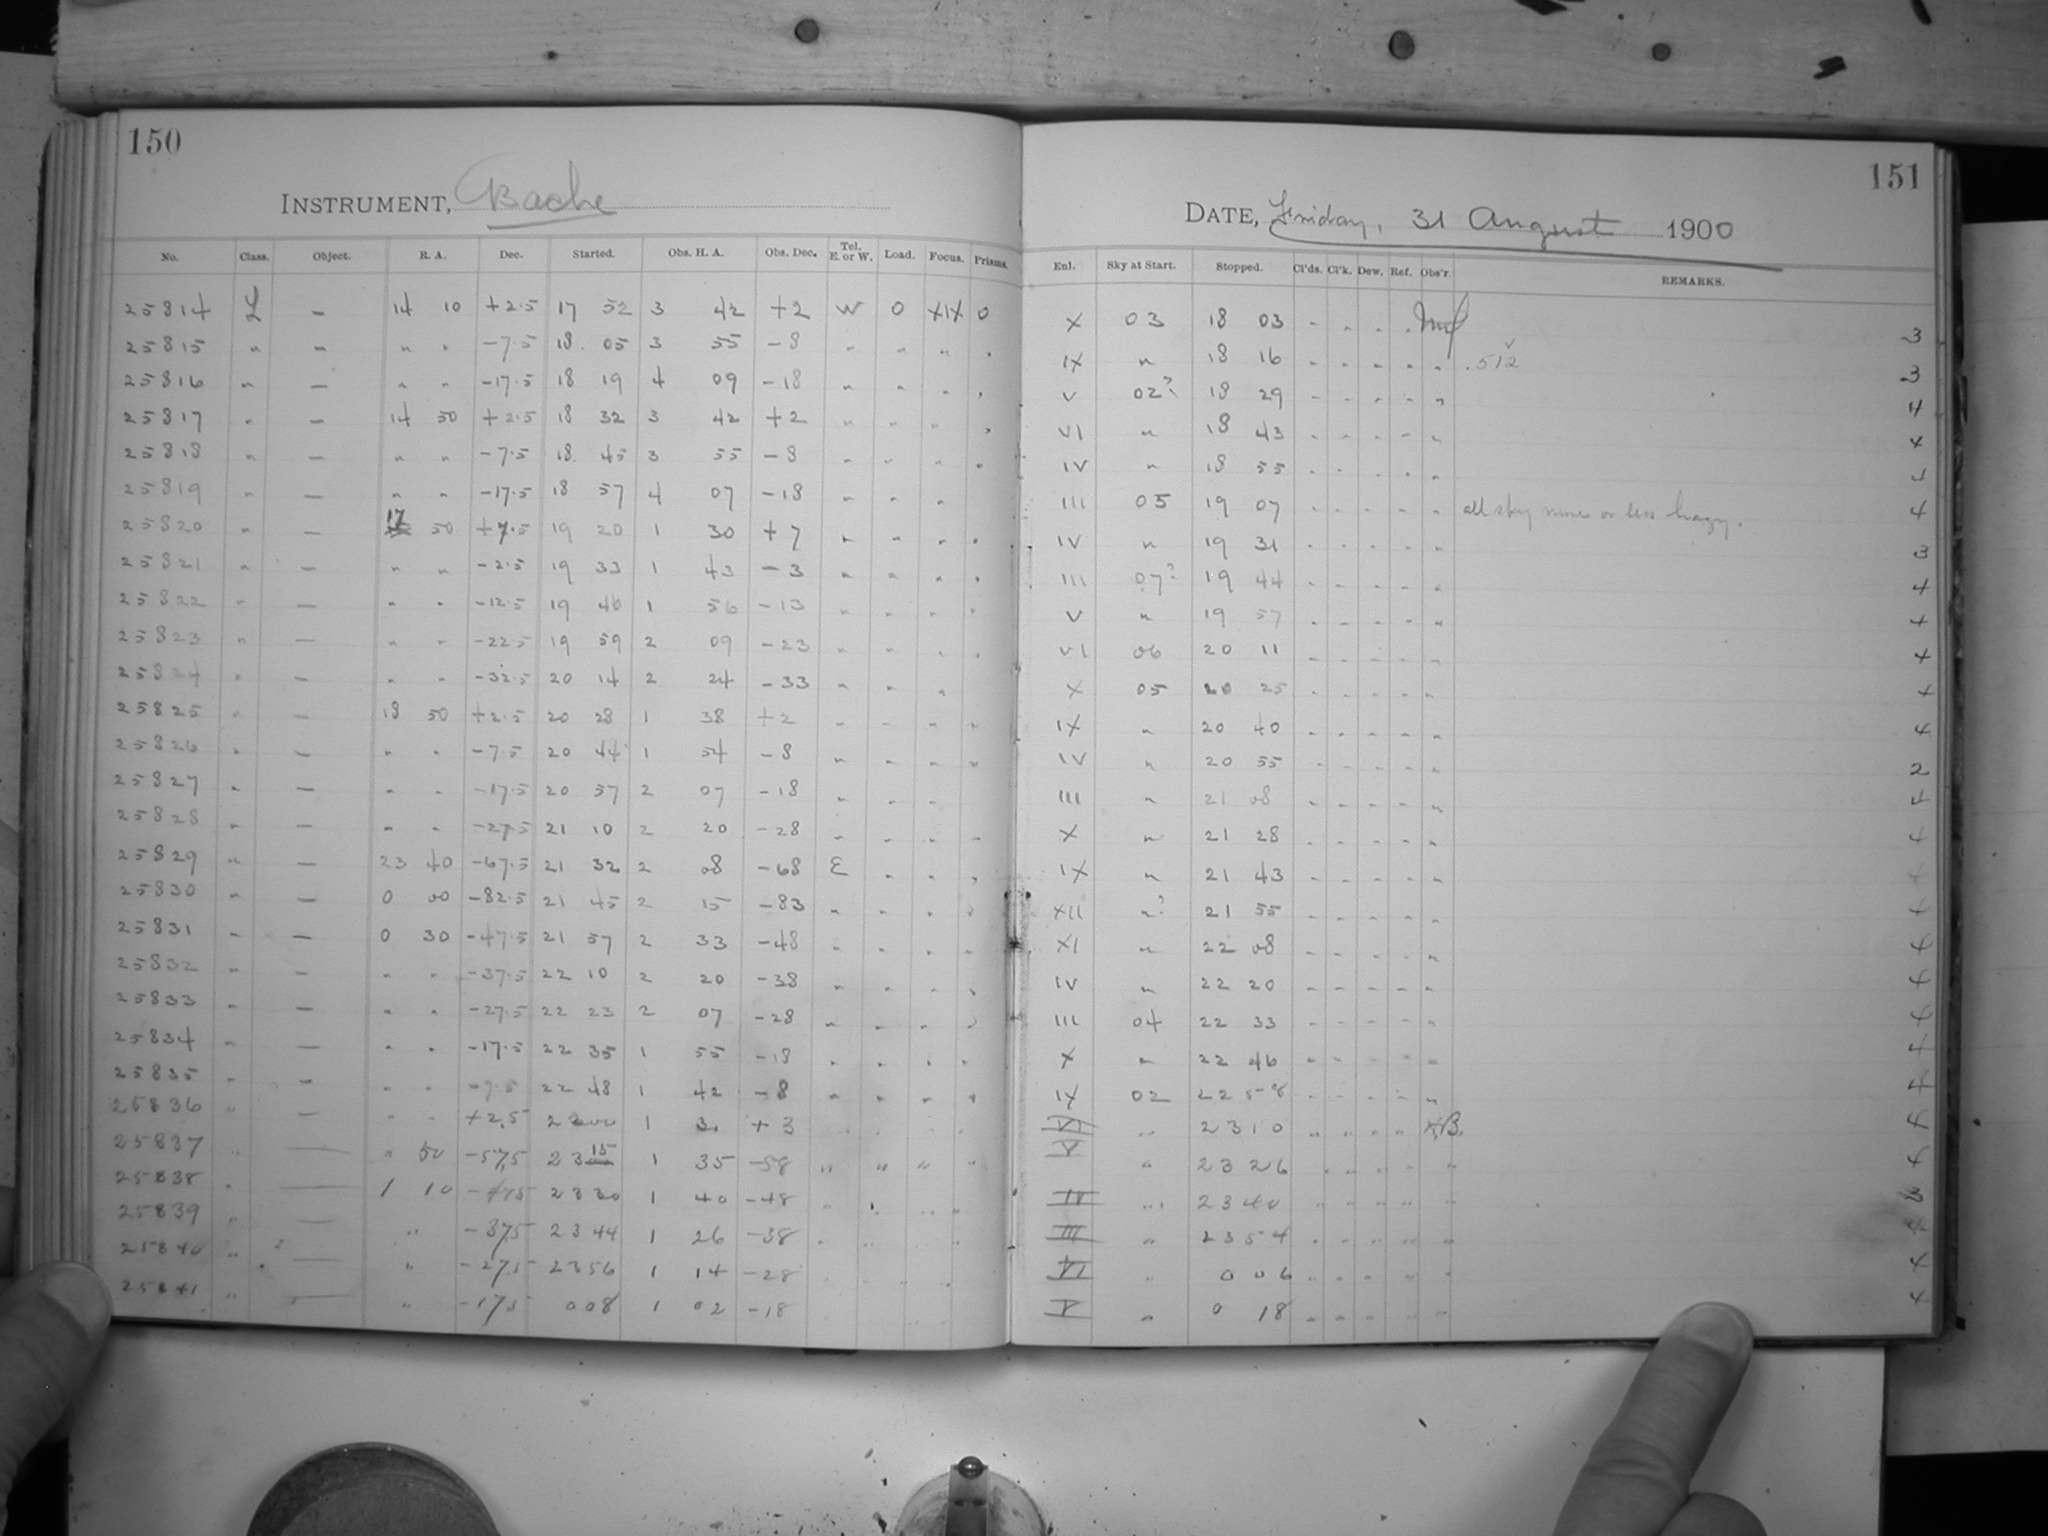 150
INSTRUMENT, Bache
No. Class. Object. R. A. Dec. Started. Obs. H. A. Obs. Dec. Tel. E. or W. Load. Focus. Prisms.
25814 L – 14 10 +2.5 17 52 3 42 +2 W 0 XIX 0
25815 " – " " -7.5 18 05 3 55 -8 " " " "
25816 " – " " -17.5 18 19 4 09 -18 " " " "
25817 " – 14 50 +2.5 18 32 3 42 +2 " " " "
25818 " – " " -7.5 18 45 3 55 -8 " " " "
25819 " – " " -17.5 18 57 4 07 -18 " " "
25820 " – 17 50 +7.5 19 20 1 30 +7 " " " "
25821 " – " " -2.5 19 33 1 43 -3 " " " "
25822 " – " " -12.5 19 46 1 56 -13 " " " "
25823 " – " " -22.5 19 59 2 09 -23 " " " "
25824 " – " " -32.5 20 14 2 24 -33 " " "
25825 " – 18 50 +2.5 20 28 1 38 +2 " " " "
25826 " – " " -7.5 20 44 1 54 -8 " " " "
25827 " – " " -17.5 20 57 2 07 -18 " " "
25828 " – " " -27.5 21 10 2 20 -28 " " " "
25829 " – 23 40 -67.5 21 32 2 08 -68 E " " "
25830 " – 0 00 -82.5 21 45 2 15 -83 " " " "
25831 " – 0 30 -47.5 21 57 2 33 -48 " " " "
25832 " – " " -37.5 22 10 2 20 -38 " " " "
25833 " – " " -27.5 22 23 2 07 -28 " " " "
25834 " – " " -17.5 22 35 1 55 -18 " " " "
25835 " – " " -7.5 22 48 1 42 -8 " " " "
25836 " – " " +2.5 23 00 1 +3 " " " "
25837 " – " 50 -57.5 23 15 1 35 -58 " " " "
25838 " – 1 10 -47.5 23 30 1 40 -48 " " "
25839 " – " -37.5 23 44 1 26 -38 " " "
25840 " – " -27.5 23 56 1 14 -28 " " "
25841 " – " -17.5 0 08 1 02 -18
151
DATE, Friday, 31 August 1900
Enl. Sky at Start. Stopped. Cl'ds. Cl'k. Dew. Ref. Obs'r. REMARKS.
X 03 18 03 - - - - 3
IX " 18 16 - - - - " .512 3
V 02? 18 29 - - - - " 4
VI " 18 43 - - - - " 4
IV " 18 55 - - - - " 4
III 05 19 07 - - - - " all sky more or less hazy. 4
IV " 19 31 - - - - " 3
III 07? 19 44 - - - - " 4
V " 19 57 - - - - " 4
VI 06 20 11 - - - - " 4
X 05 20 25 - - - - " 4
IX " 20 40 - - - - " 4
IV " 20 55 - - - - " 2
III " 21 08 - - - - " 4
X " 21 28 - - - - " 4
IX " 21 43 - - - - " 4
XII "? 21 55 - - - - " 4
XI " 22 08 - - - - " 4
IV " 22 20 - - - - " 4
III 04 22 33 - - - - " 4
X " 22 46 - - - - " 4
IX 02 22 58 - - - - " 4
VI " 23 10 " " " " 4
V " 23 26 " " " " " 4
IV " 23 40 " " " " "
III " 23 54 " " " " " 4
VI " 0 06 " " " " " 4
V " 0 18 " " " " " 4